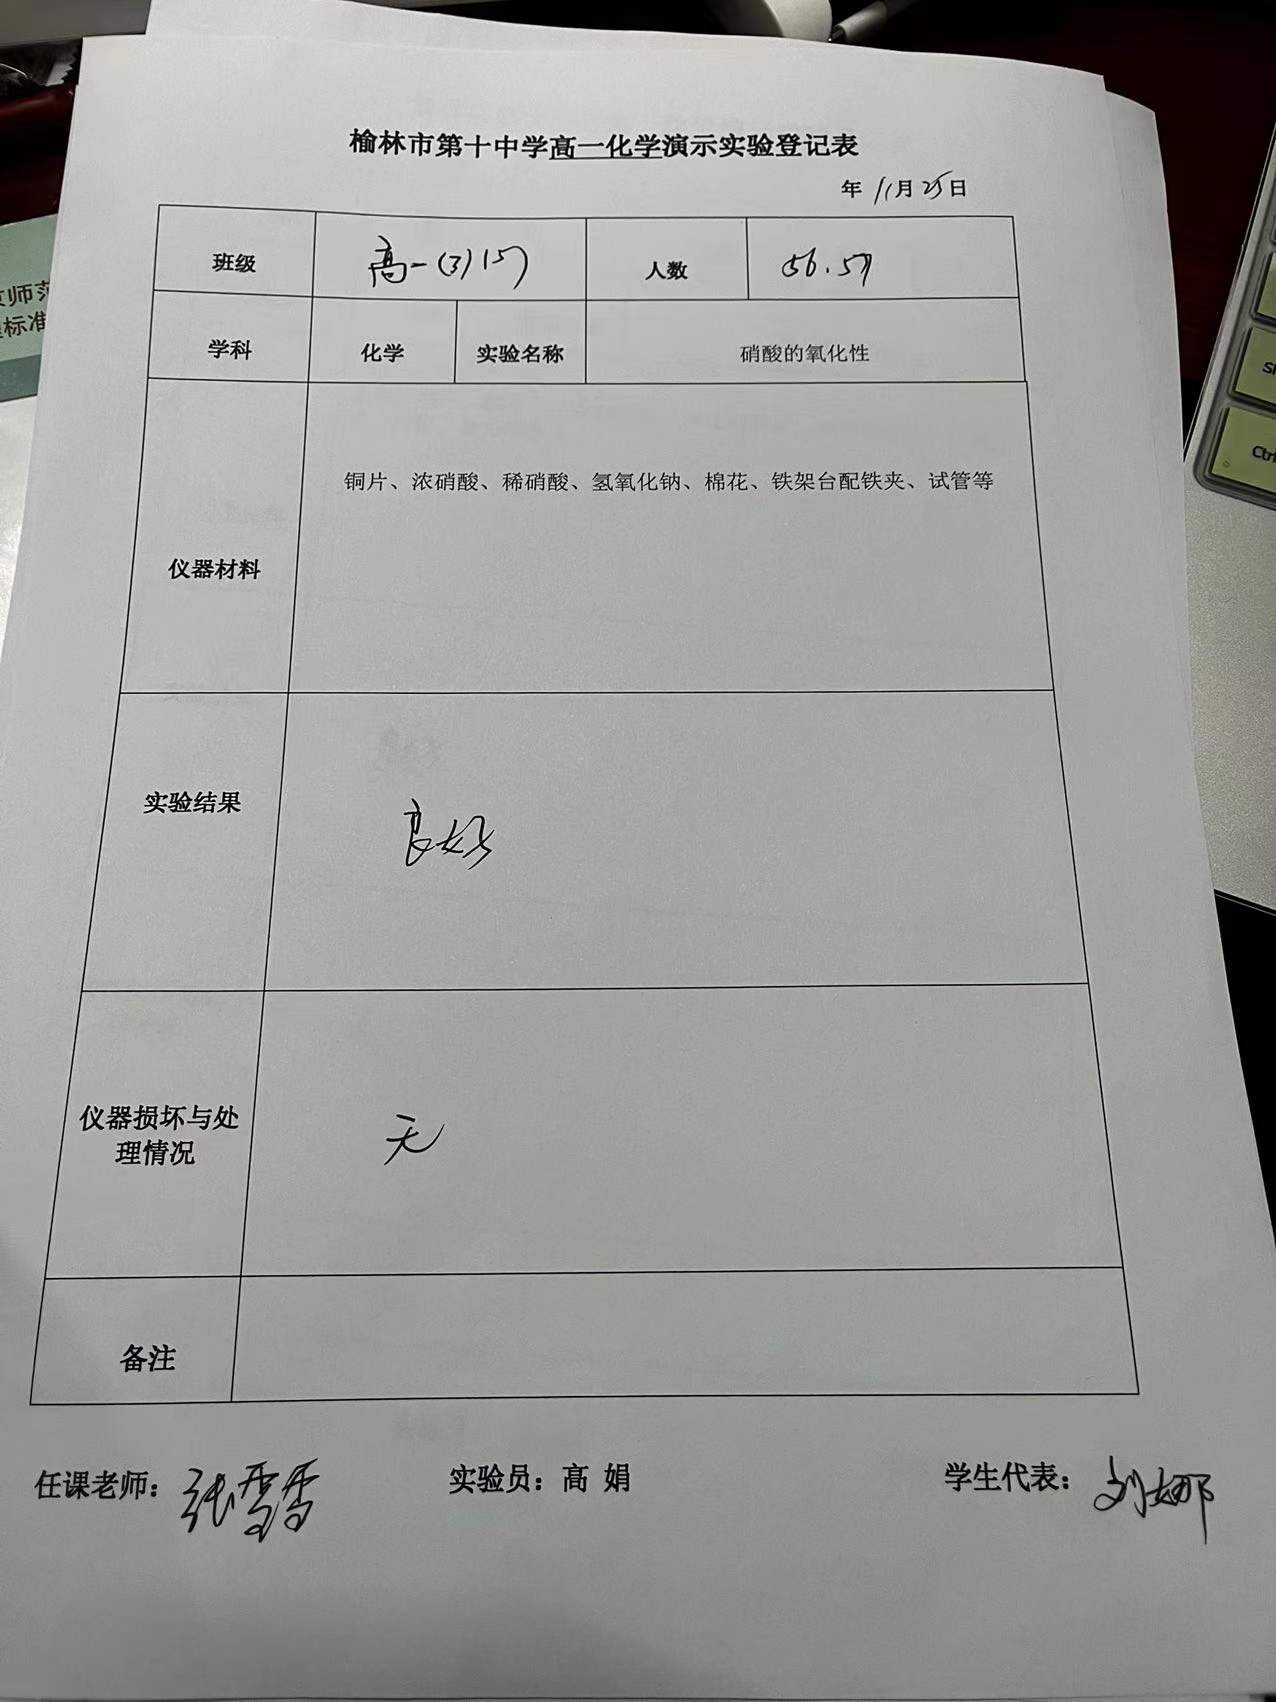 榆林市第十中学高一化学演示实验登记表
年 11月25日
班级 高一(3)15) 人数 56.57
学科 化学 实验名称 硝酸的氧化性
铜片、浓硝酸、稀硝酸、氢氧化钠、棉花、铁架台配铁夹、试管等
仪器材料
实验结果
良好
仪器损坏与处
理情况
无
备注
任课老师：张雪雪 实验员：高 娟 学生代表：刘娜
师范
标准
Ctrl